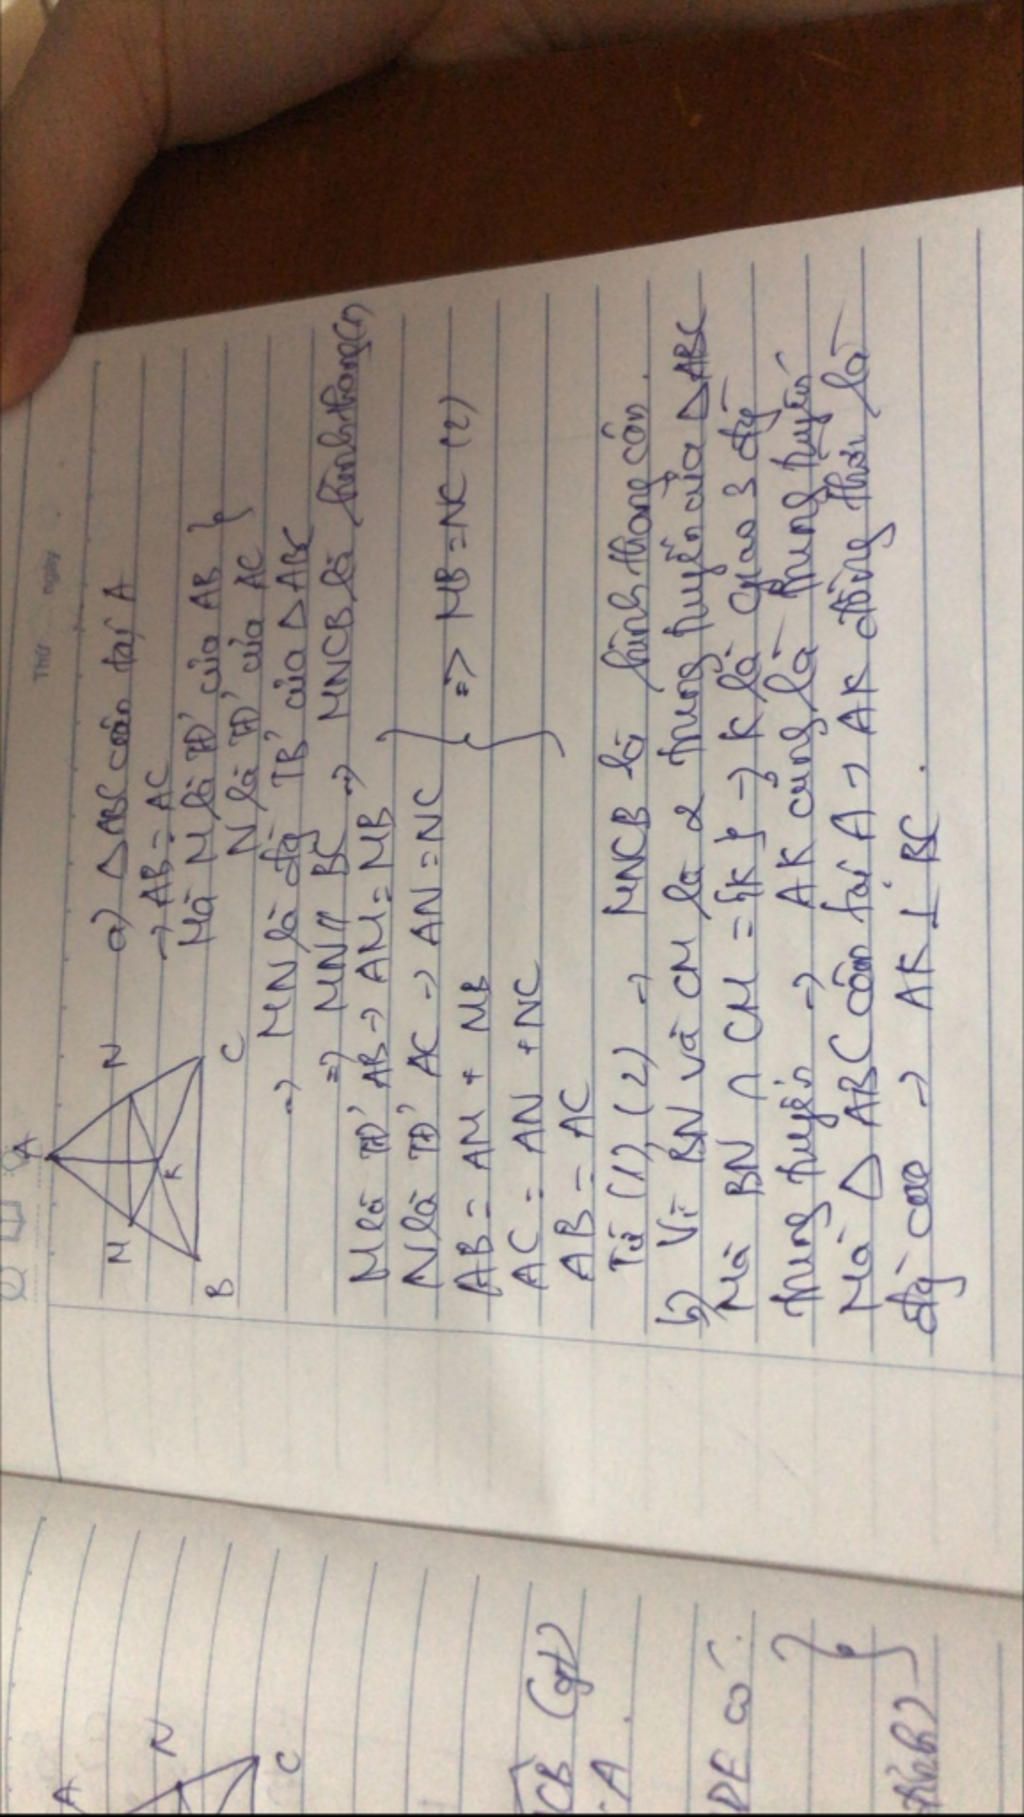 Thứ
ngày
A
M
N
K
B
C
a) ΔABC cân tại A
→ AB = AC
Mà M là TĐ' của AB }
N là TĐ' của AC
→ MN là đg TB' của ΔABC
=> MN // BC → MNCB là hình thang(1)
M là TĐ' AB → AM = MB
N là TĐ' AC → AN = NC
AB = AM + MB
AC = AN + NC
AB = AC
=> MB = NC (2)
Từ (1), (2) → MNCB là hình thang cân.
b) Vì BN và CM là 2 trung tuyến của ΔABC
Mà BN ∩ CM = {K} → K là giao 3 đg
trung tuyến → AK cũng là trung tuyến
Mà ΔABC cân tại A → AK đồng thời là
đg cao → AK ⊥ BC.
A
N
C
CB (gt)
A.
DE có:
}